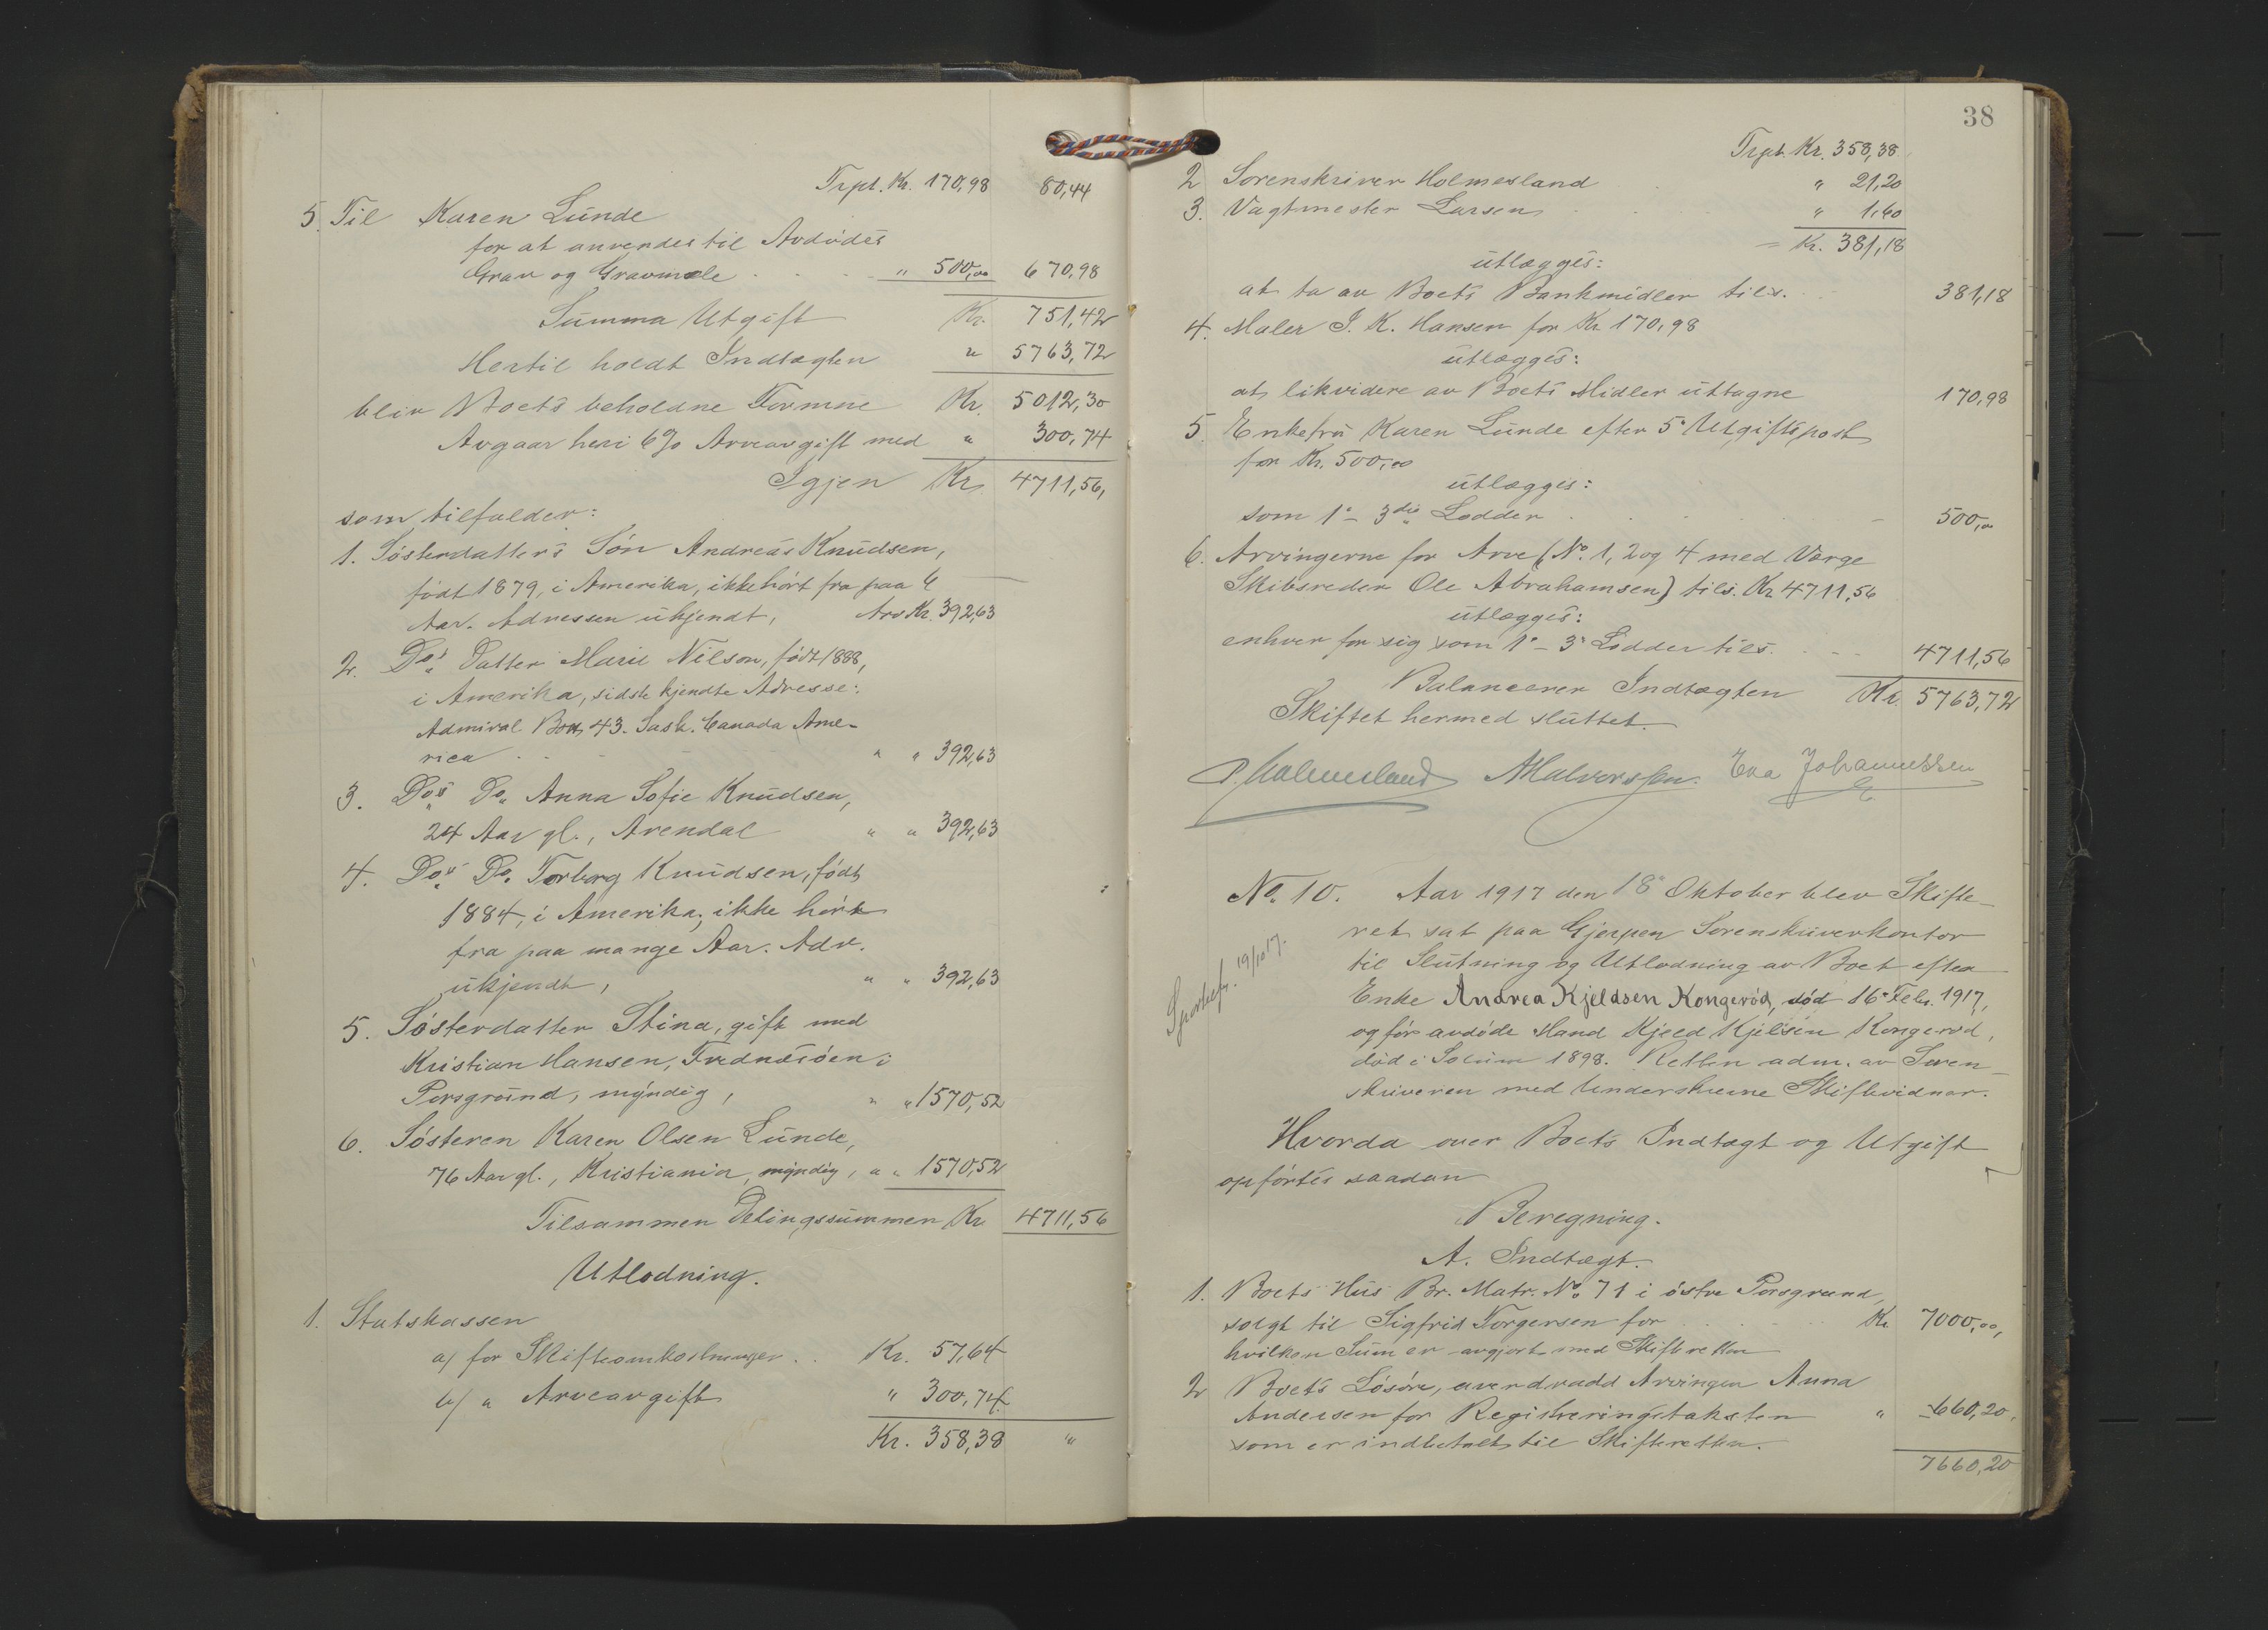 Trpt. Kr. 170,98 80,44
5. Til Karen Lunde
for at anvendes til Avdødes
Grav og Gravmæle . . . " 500,00 670,98
Summa Utgift Kr. 751,42
Hertil holdt Indtægten " 5763,72
bliv Boets beholdne Formue Kr. 5012,30
Avgaar heri 6% Arveavgift med " 300,74
Igjen Kr. 4711,56,
som tilfalder:
1. Søsterdatters Søn Andreas Knudsen,
født 1879, i Amerika, ikke hørt fra paa 4
Aar. Adressen ukjendt, Arv Kr. 392,63
2. Do's Datter Marie Nilson, født 1888,
i Amerika, sidste kjendte Adresse:
Admiral Box 43. Sask. Canada Ame-
rica . . " " 392,63
3. Do's Do. Anna Sofie Knudsen,
24 Aar gl., Arendal " " 392,63
4. Do's Do. Torborg Knudsen, født
1884, i Amerika, ikke hørt
fra paa mange Aar. Adr.
ukjendt, " " 392,63
5. Søsterdatter Stina, gift med
Kristian Hansen, Frednæsøen i
Porsgrund, myndig, " " 1570,52
6. Søsteren Karen Olsen Lunde,
76 Aar gl., Kristiania, myndig, " " 1570,52
Tilsammen Delingssummen Kr. 4711,56
Utlodning.
1. Statskassen
a) for Skifteomkostninger . . Kr. 57,64
b) " Arveavgift " 300,74
Kr. 358,38 "
38
Trpt. Kr. 358,38
2 Sorenskriver Holmesland . " 21,20
3. Vagtmester Larsen . . . " 1,60
= Kr. 381,18
utlægges:
at ta av Boets Bankmidler tils. . . 381,18
4. Maler J. K. Hansen for Kr. 170,98
utlægges:
at likvidere av Boets Midler uttagne 170,98
5. Enkefru Karen Lunde efter 5' Utgiftspost
for Kr. 500,00
utlægges:
som 1' - 3die Lodder . . . . - 500,00
6. Arvingerne for Arv (No. 1, 2 og 4 med Værge
Skibsreder Ole Abrahamsen) tils. Kr. 4711,56
utlægges:
enhver for sig som 1' - 3' Lodder tils. . . - 4711,56
Balancerer Indtægten Kr. 5763,72
Skiftet hermed sluttet.
P. Holmesland A Halvorssen. Eva Johannessen
No. 10. Aar 1917 den 18' Oktober blev Skifte-
ret sat paa Gjerpen Sorenskriverkontor
til Slutning og Utlodning av Boet efter
19/10 17.
Enke Andrea Kjeldsen Kongerød, død 16' Febr. 1917,
og før avdøde Mand Kjeld Kjelsen Kongerød,
død i Solum 1898. Retten adm. av Soren-
skriveren med Underskrevne Skiftevidner.
Hvorda over Boets Indtægt og Utgift
opførtes saadan
Beregning.
A. Indtægt.
1. Boets Hus Br. Matr. No. 71 i østre Porsgrund,
solgt til Sigfrid Torgersen for . . . . Kr. 7000,00,
hvilken Sum er avgjort med Skifteretten
2 Boets Løsøre, overdradd Arvingen Anna
Andersen for Registreringstaksten " 660,20,
som er indbetalt til Skifteretten.
7660,20